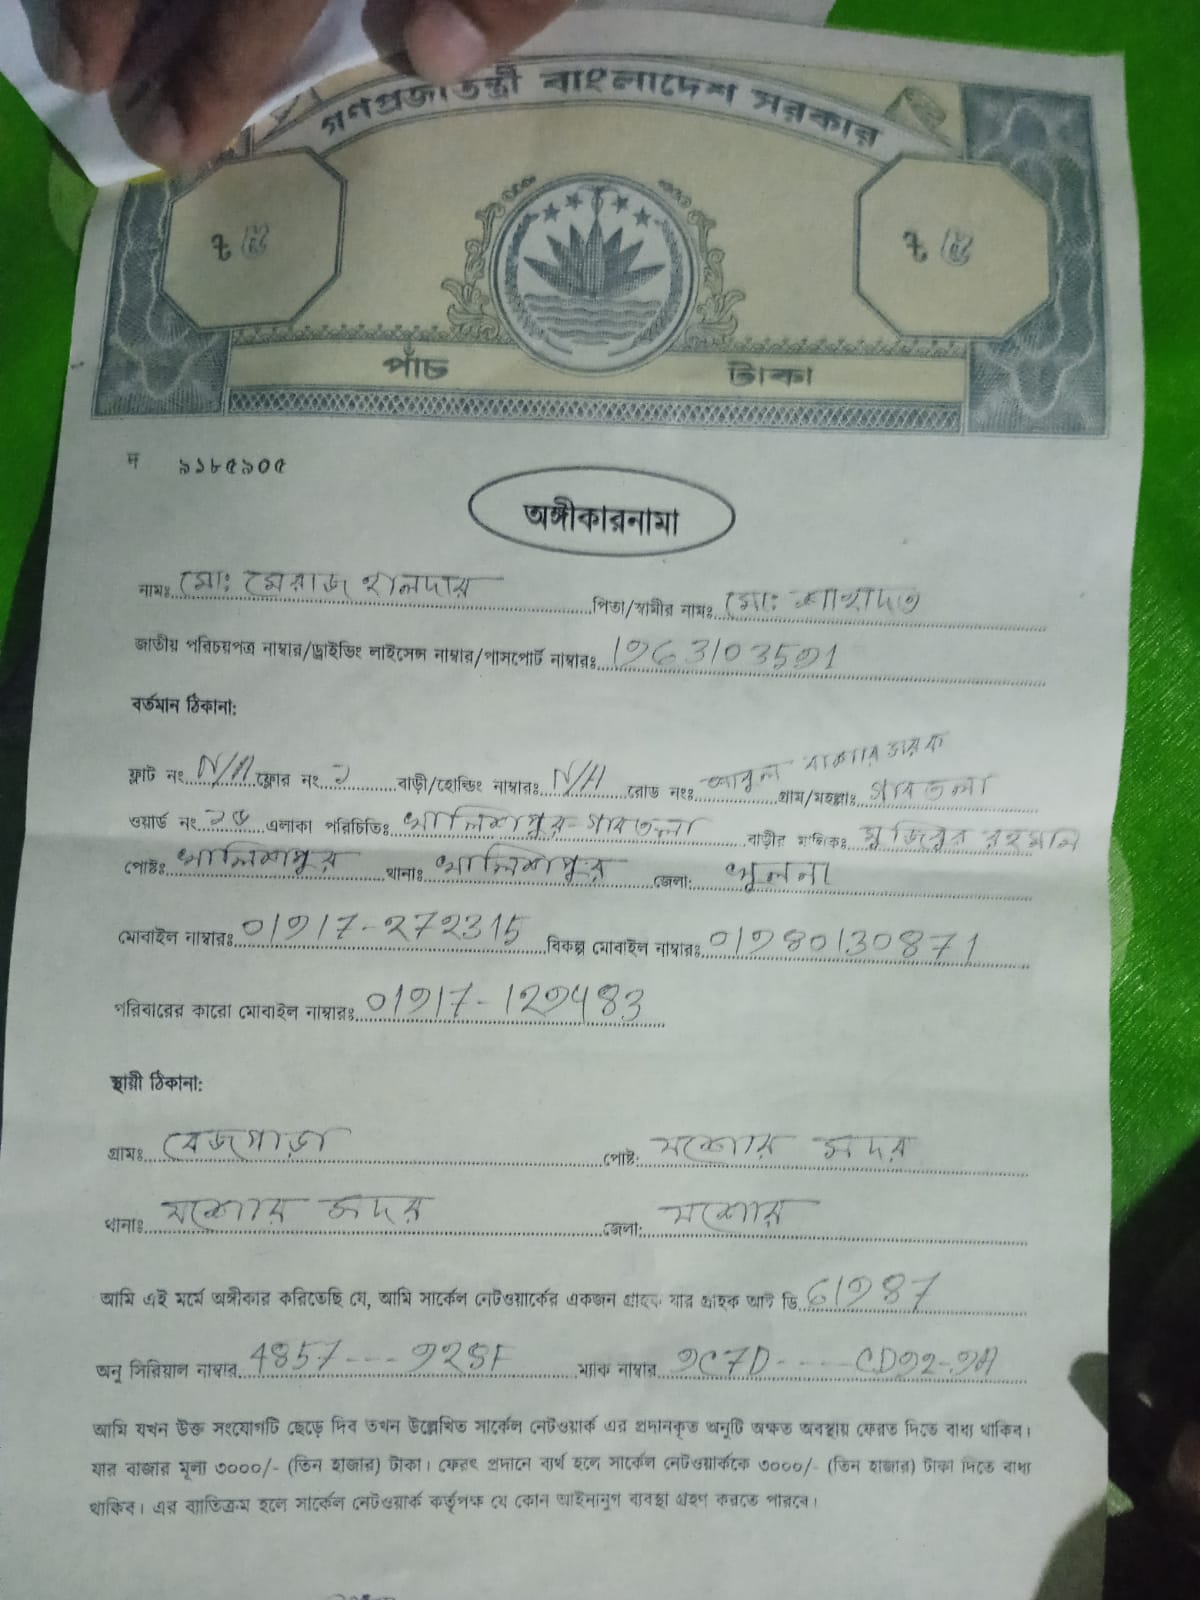 গণপ্রজাতন্ত্রী বাংলাদেশ সরকার
৫ ৫
পাঁচ টাকা
দ ৯১৮৫৯০৫
অঙ্গীকারনামা
নামঃ মোঃ মেরাজ হালদার পিতা/স্বামীর নামঃ মোঃ শাহাদত
জাতীয় পরিচয়পত্র নাম্বার/ড্রাইভিং লাইসেন্স নাম্বার/পাসপোর্ট নাম্বারঃ 1963103591
বর্তমান ঠিকানা:
ফ্লাট নং N/A ফ্লোর নং ১ বাড়ী/হোল্ডিং নাম্বারঃ N/A রোড নংঃ আবুল গ্রাম/মহল্লাঃ গাবতলা
ওয়ার্ড নং এলাকা পরিচিতিঃ খালিশপুর-গাবতলা বাড়ীর মালিকঃ মুজিবুর রহমান
পোষ্টঃ খালিশপুর থানাঃ খালিশপুর জেলা: খুলনা
মোবাইল নাম্বারঃ 01917-272315 বিকল্প মোবাইল নাম্বারঃ 01980130871
পরিবারের কারো মোবাইল নাম্বারঃ 01917-129483
স্থায়ী ঠিকানা:
গ্রামঃ বেজপাড়া পোষ্ট: যশোর সদর
থানাঃ যশোর সদর জেলা: যশোর
আমি এই মর্মে অঙ্গীকার করিতেছি যে, আমি সার্কেল নেটওয়ার্কের একজন গ্রাহক যার গ্রাহক আই ডি 61987
অনু সিরিয়াল নাম্বার 4857---929F ম্যাক নাম্বার 9C7D----CD92-9A
আমি যখন উক্ত সংযোগটি ছেড়ে দিব তখন উল্লেখিত সার্কেল নেটওয়ার্ক এর প্রদানকৃত অনুটি অক্ষত অবস্থায় ফেরত দিতে বাধ্য থাকিব।
যার বাজার মূল্য ৩০০০/- (তিন হাজার) টাকা। ফেরৎ প্রদানে ব্যর্থ হলে সার্কেল নেটওয়ার্ককে ৩০০০/- (তিন হাজার) টাকা দিতে বাধ্য
থাকিব। এর ব্যতিক্রম হলে সার্কেল নেটওয়ার্ক কর্তৃপক্ষ যে কোন আইনানুগ ব্যবস্থা গ্রহণ করতে পারবে।